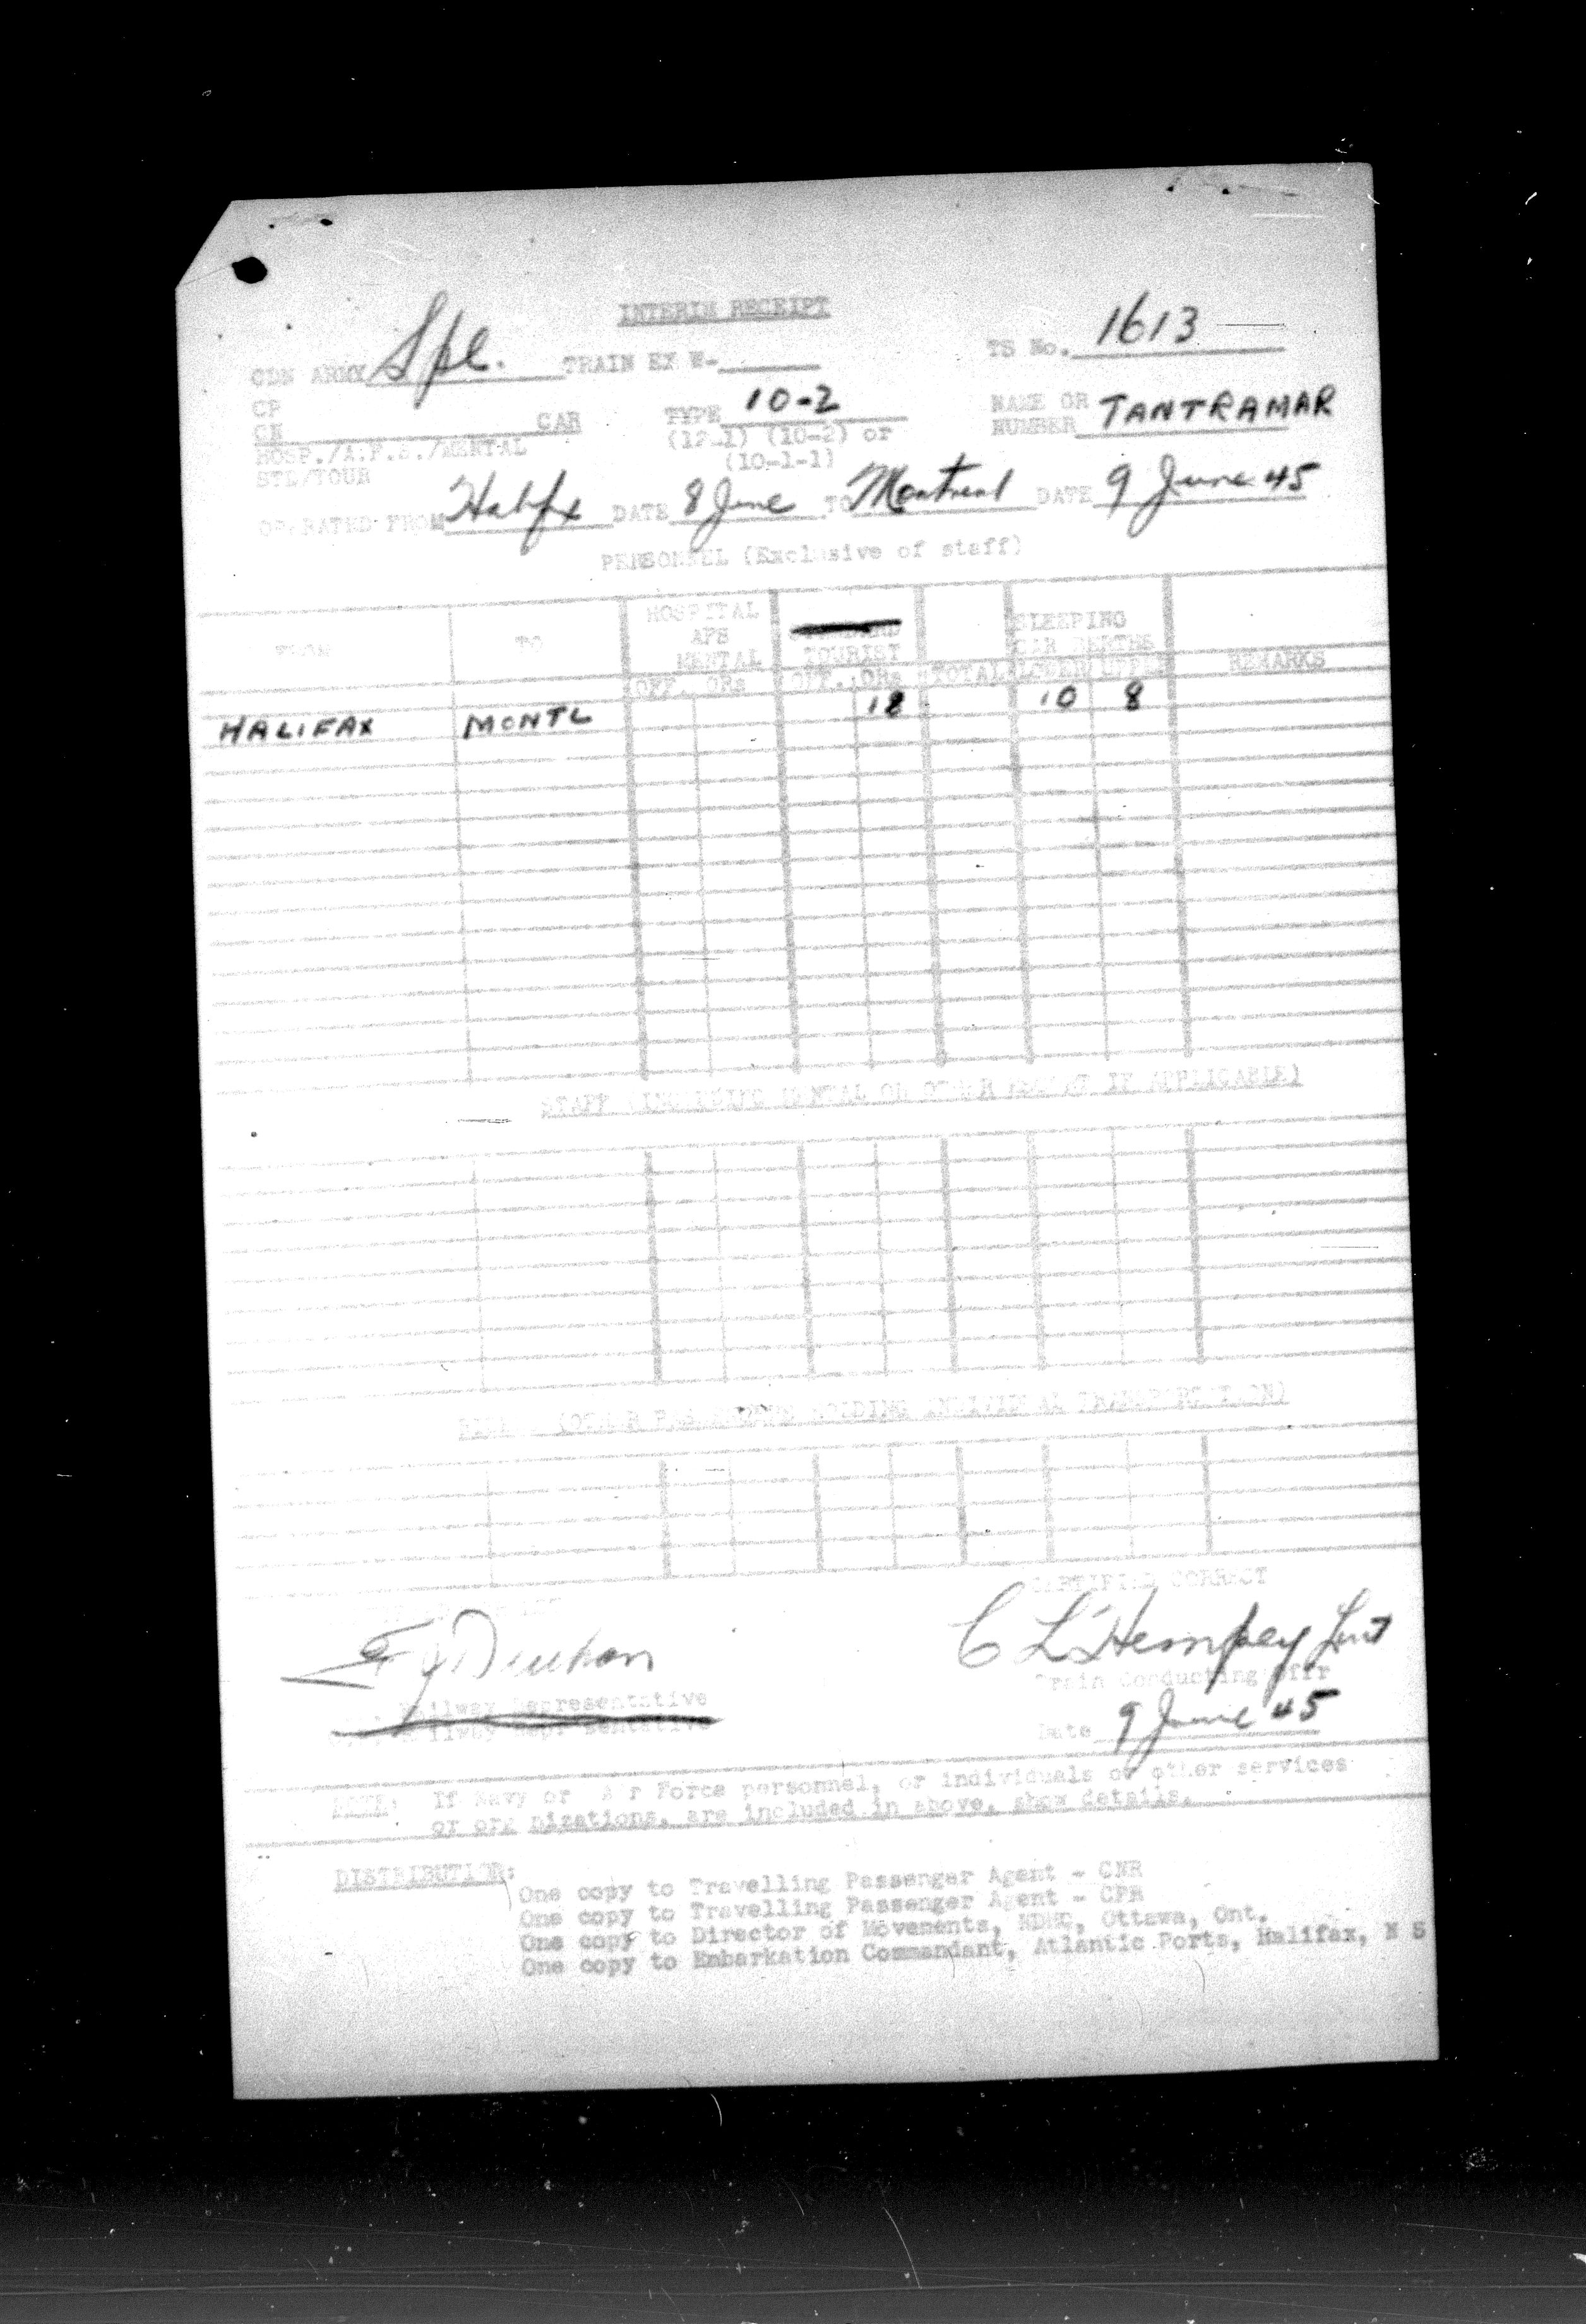 INTERIM RECEIPT
CDN ARMY Spl. TRAIN EX W- TS No. 1613
CP
CN CAR TYPE 10-2 NAME OR NUMBER TANTRAMAR
HOSP./A.P.S./MENTAL (12-1) (10-2) or
STD/TOUR (10-1-1)
OPERATED FROM Halifx DATE 8 June TO Montreal DATE 9 June 45
PERSONNEL (Exclusive of staff)
FROM TO HOSPITAL APS MENTAL STANDARD TOURIST SLEEPING CAR BERTHS
OFF. ORs OFF. ORs TOTAL LOWER UPPER REMARKS
HALIFAX MONTL 18 10 8
STAFF (INCLUDING MENTAL OR OTHER ESCORT IF APPLICABLE)
(OTHER PASSENGERS HOLDING INDIVIDUAL TRANSPORTATION)
CERTIFIED CORRECT
C L Hempey Lieut
Railway Representative Train Conducting Offr
Railway Representative Date 9 June 45
NOTE: If Navy or Air Force personnel, or individuals of other services
or organizations, are included in above, show details.
DISTRIBUTION:
One copy to Travelling Passenger Agent - CNR
One copy to Travelling Passenger Agent - CPR
One copy to Director of Movements, NDHQ, Ottawa, Ont.
One copy to Embarkation Commandant, Atlantic Ports, Halifax, N S